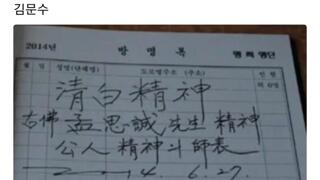 김문수
2014년 방명록 명 력 명단
월 일 성명(단체명) 도로명주소 (주소) 인원
외 6명
清白精神
古佛 孟思誠 先生 精神
公人 精神 斗 師表
2014. 6. 27.